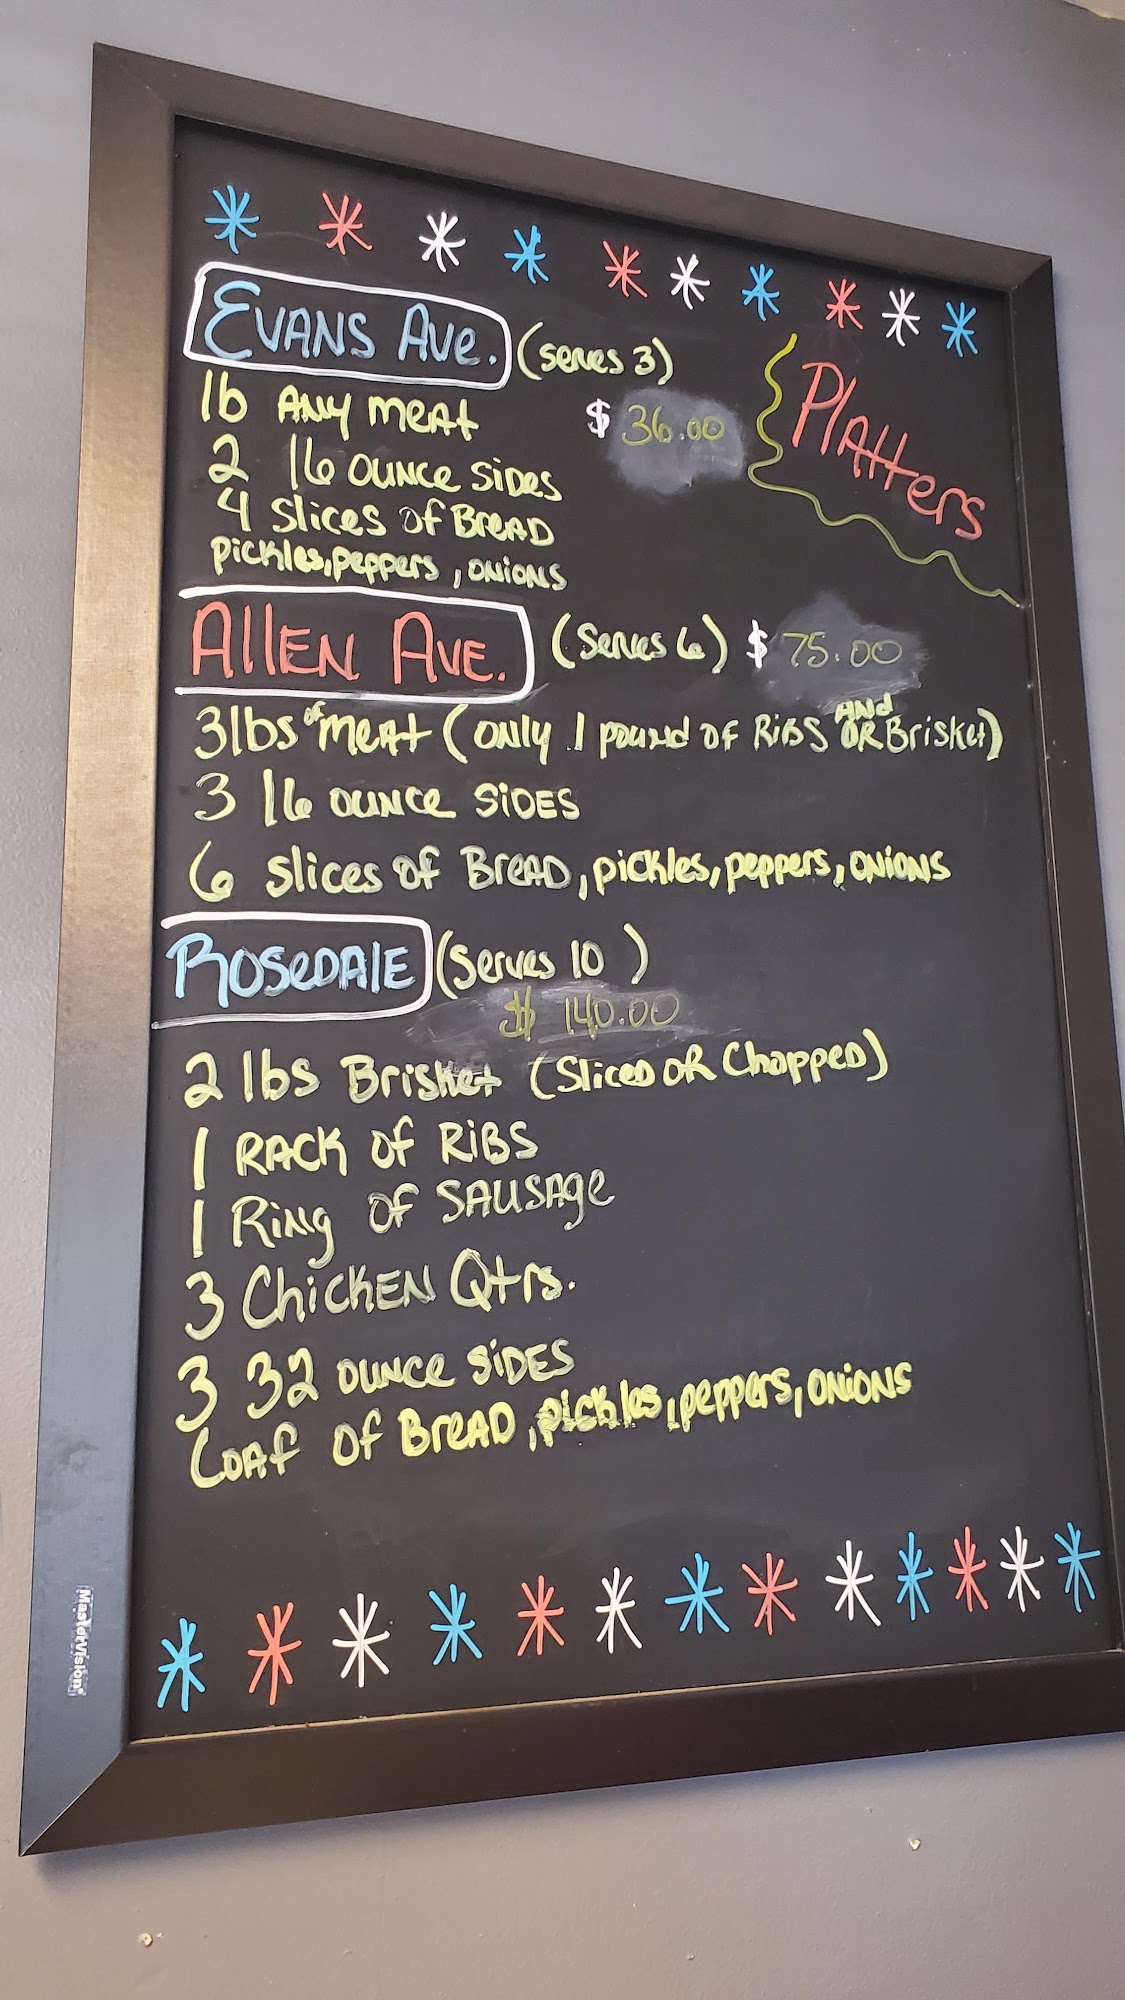 Platters
EVANS AVE. (serves 3)
1b ANY MEAT $ 36.00
2 16 OUNCE SIDES
4 slices of BREAD
pickles, peppers, ONIONS
AllEN AVE. (serves 6) $ 75.00
3lbs of MEAT (ONly 1 pound of RiBS AND OR Brisket)
3 16 OUNCE SIDES
6 slices of BREAD, pickles, peppers, ONIONS
ROSEDALE (Serves 10)
$ 140.00
2 lbs Brisket (Sliced OR Chopped)
1 RACK of RiBS
1 Ring of SAUSAge
3 ChickEN Qtrs.
3 32 OUNCE SIDES
Loaf of BREAD, pickles, peppers, ONIONS
MasterVision